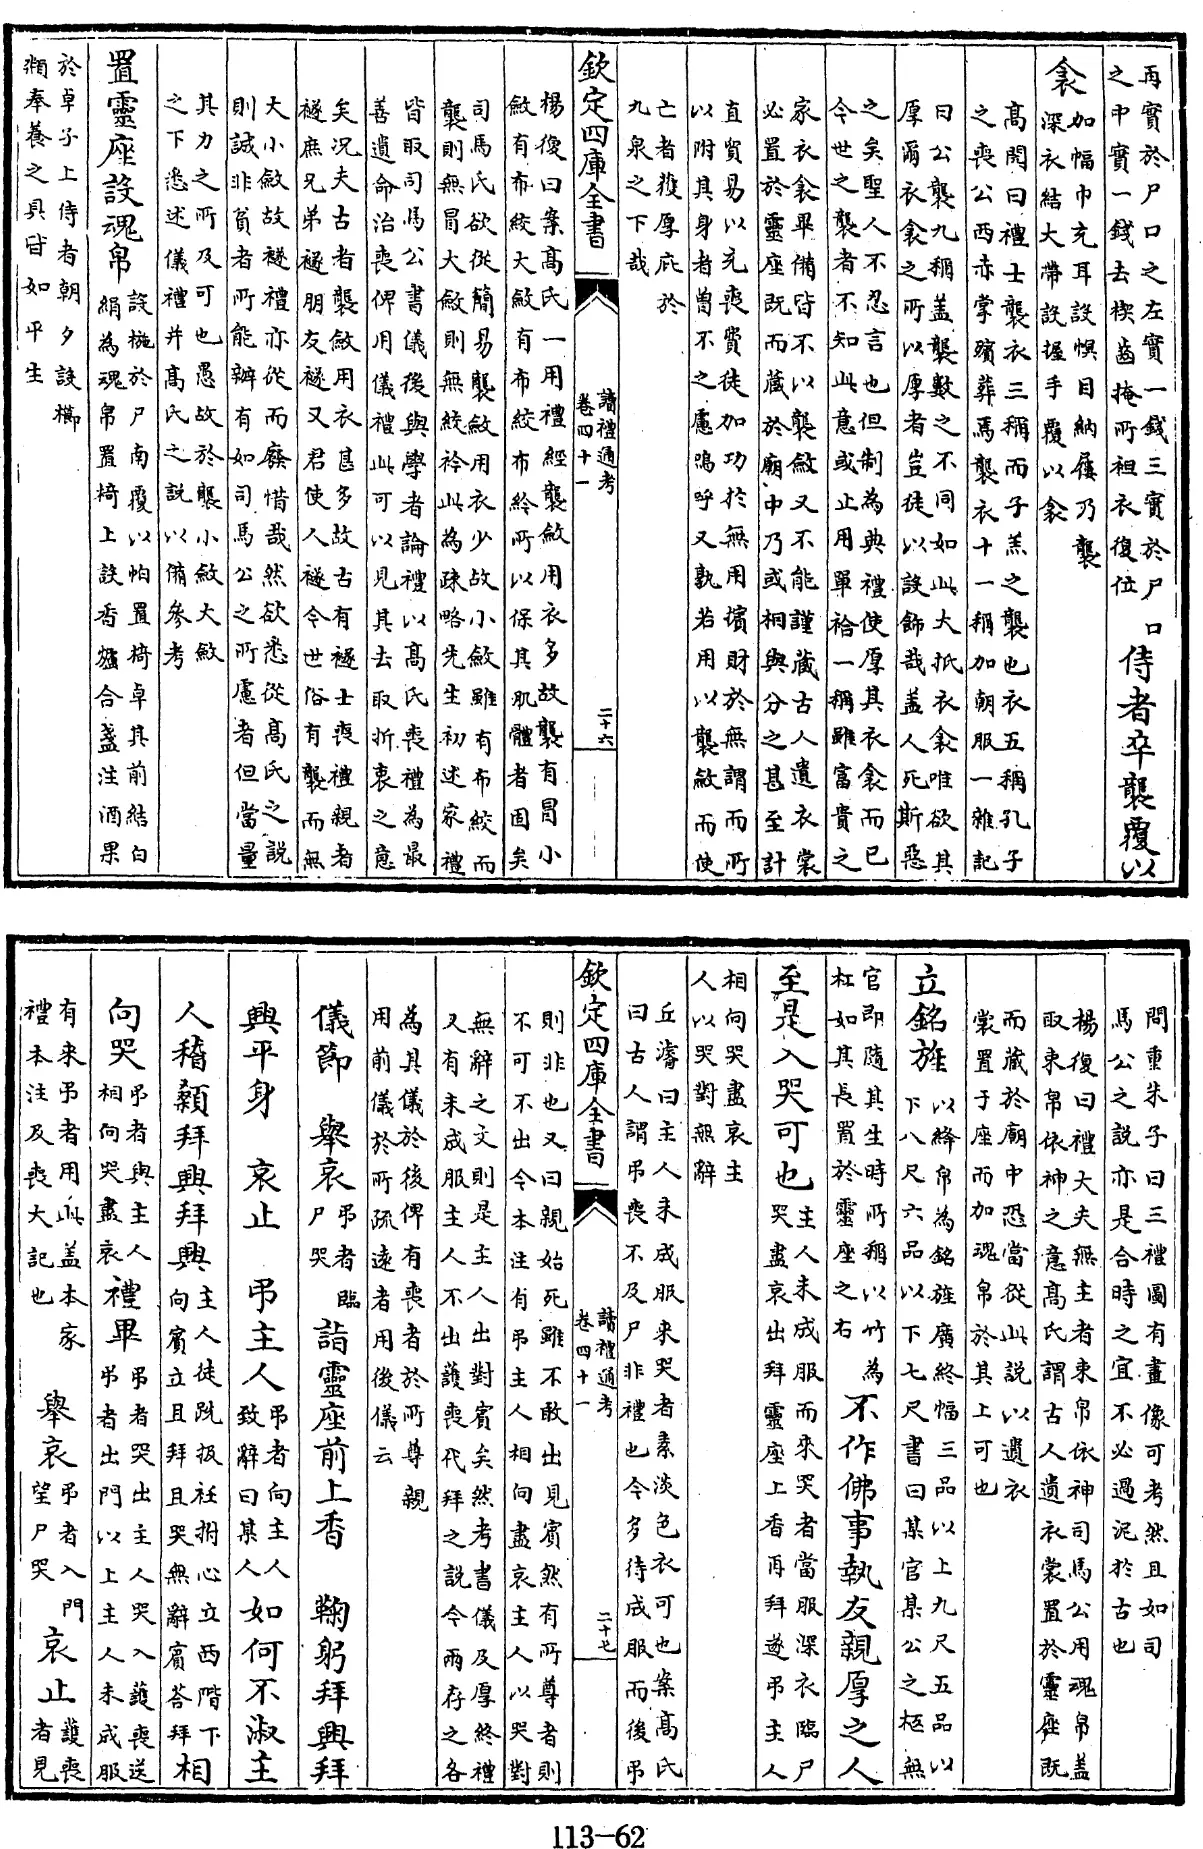 再實於尸口之左實一錢三實於尸口
之中實一錢去楔齒掩所袒衣復位
侍者卒襲覆以
衾
加幅巾充耳設幎目納屨乃襲
深衣結大帶設握手覆以衾
高閌曰禮士襲衣三稱而子羔之襲也衣五稱孔子
之喪公西赤掌殯葬焉襲衣十一稱加朝服一雜記
曰公襲九稱盖襲數之不同如此大抵衣衾唯欲其
厚爾衣衾之所以厚者豈徒以設飾哉盖人死斯惡
之矣聖人不忍言也但制為典禮使厚其衣衾而已
今世之襲者不知此意或止用單袷一稱雖富貴之
家衣衾畢備皆不以襲斂又不能謹藏古人遺衣裳
必置於靈座既而藏於廟中乃或相與分之甚至計
直貿易以充喪費徒加功於無用擯財於無謂而所
以附其身者曽不之慮嗚呼又孰若用以襲斂而使
亡者獲厚庇於
九泉之下哉
欽定四庫全書
讀禮通考
卷四十一
二十六
楊復曰案高氏一用禮經襲斂用衣多故襲有冒小
斂有布絞大斂有布絞布紟所以保其肌體者固矣
司馬氏欲從簡易襲斂用衣少故小斂雖有布絞而
襲則無冒大斂則無絞紟此為疎略先生初述家禮
皆取司馬公書儀後與學者論禮以高氏喪禮為最
善遺命治喪俾用儀禮此可以見其去取折衷之意
矣况夫古者襲斂用衣甚多故古有襚士喪禮親者
襚庶兄弟襚朋友襚又君使人襚今世俗有襲而無
大小斂故襚禮亦從而廢惜哉然欲悉從高氏之説
則誠非貧者所能辦有如司馬公之所慮者但當量
其力之所及可也愚故於襲小斂大斂
之下悉述儀禮并高氏之説以備參考
置靈座設魂帛
設椸於尸南覆以帕置椅卓其前結白
絹為魂帛置椅上設香爐合盞注酒果
於卓子上侍者朝夕設櫛
頮奉養之具皆如平生
問重朱子曰三禮圖有畫像可考然且如司
馬公之説亦是合時之宜不必過泥於古也
楊復曰禮大夫無主者束帛依神司馬公用魂帛盖
取束帛依神之意高氏謂古人遺衣裳置於靈座既
而藏於廟中恐當從此説以遺衣
裳置于座而加魂帛於其上可也
立銘旌
以絳帛為銘旌廣終幅三品以上九尺五品以
下八尺六品以下七尺書曰某官某公之柩無
官即隨其生時所稱以竹為
杠如其長置於靈座之右
不作佛事執友親厚之人
至是入哭可也
主人未成服而來哭者當服深衣臨尸
哭盡哀出拜靈座上香再拜遂弔主人
相向哭盡哀主
人以哭對無辭
丘濬曰主人未成服来哭者素淡色衣可也案高氏
曰古人謂弔喪不及尸非禮也今多待成服而後弔
欽定四庫全書
讀禮通考
卷四十一
二十七
則非也又曰親始死雖不敢出見賓然有所尊者則
不可不出今本注有弔主人相向盡哀主人以哭對
無辭之文則是主人出對賓矣然考書儀及厚終禮
又有未成服主人不出護喪代拜之説今兩存之各
為其儀於後俾有喪者於所尊親
用前儀於所疏遠者用後儀云
儀節
舉哀
弔者臨
尸哭
詣靈座前上香
鞠躬拜興拜
興平身
哀止
弔主人
弔者向主人
致辭曰某人
如何不淑主
人稽顙拜興拜興
主人徒跣扱衽拊心立西階下
向賓立且拜且哭無辭賓荅拜
相
向哭
弔者與主人
相向哭盡哀
禮畢
弔者哭出主人哭入護喪送
弔者出門以上主人未成服
有来弔者用此盖本家
禮本注及喪大記也
舉哀
弔者入門
望尸哭
哀止
護喪
者見
113-62